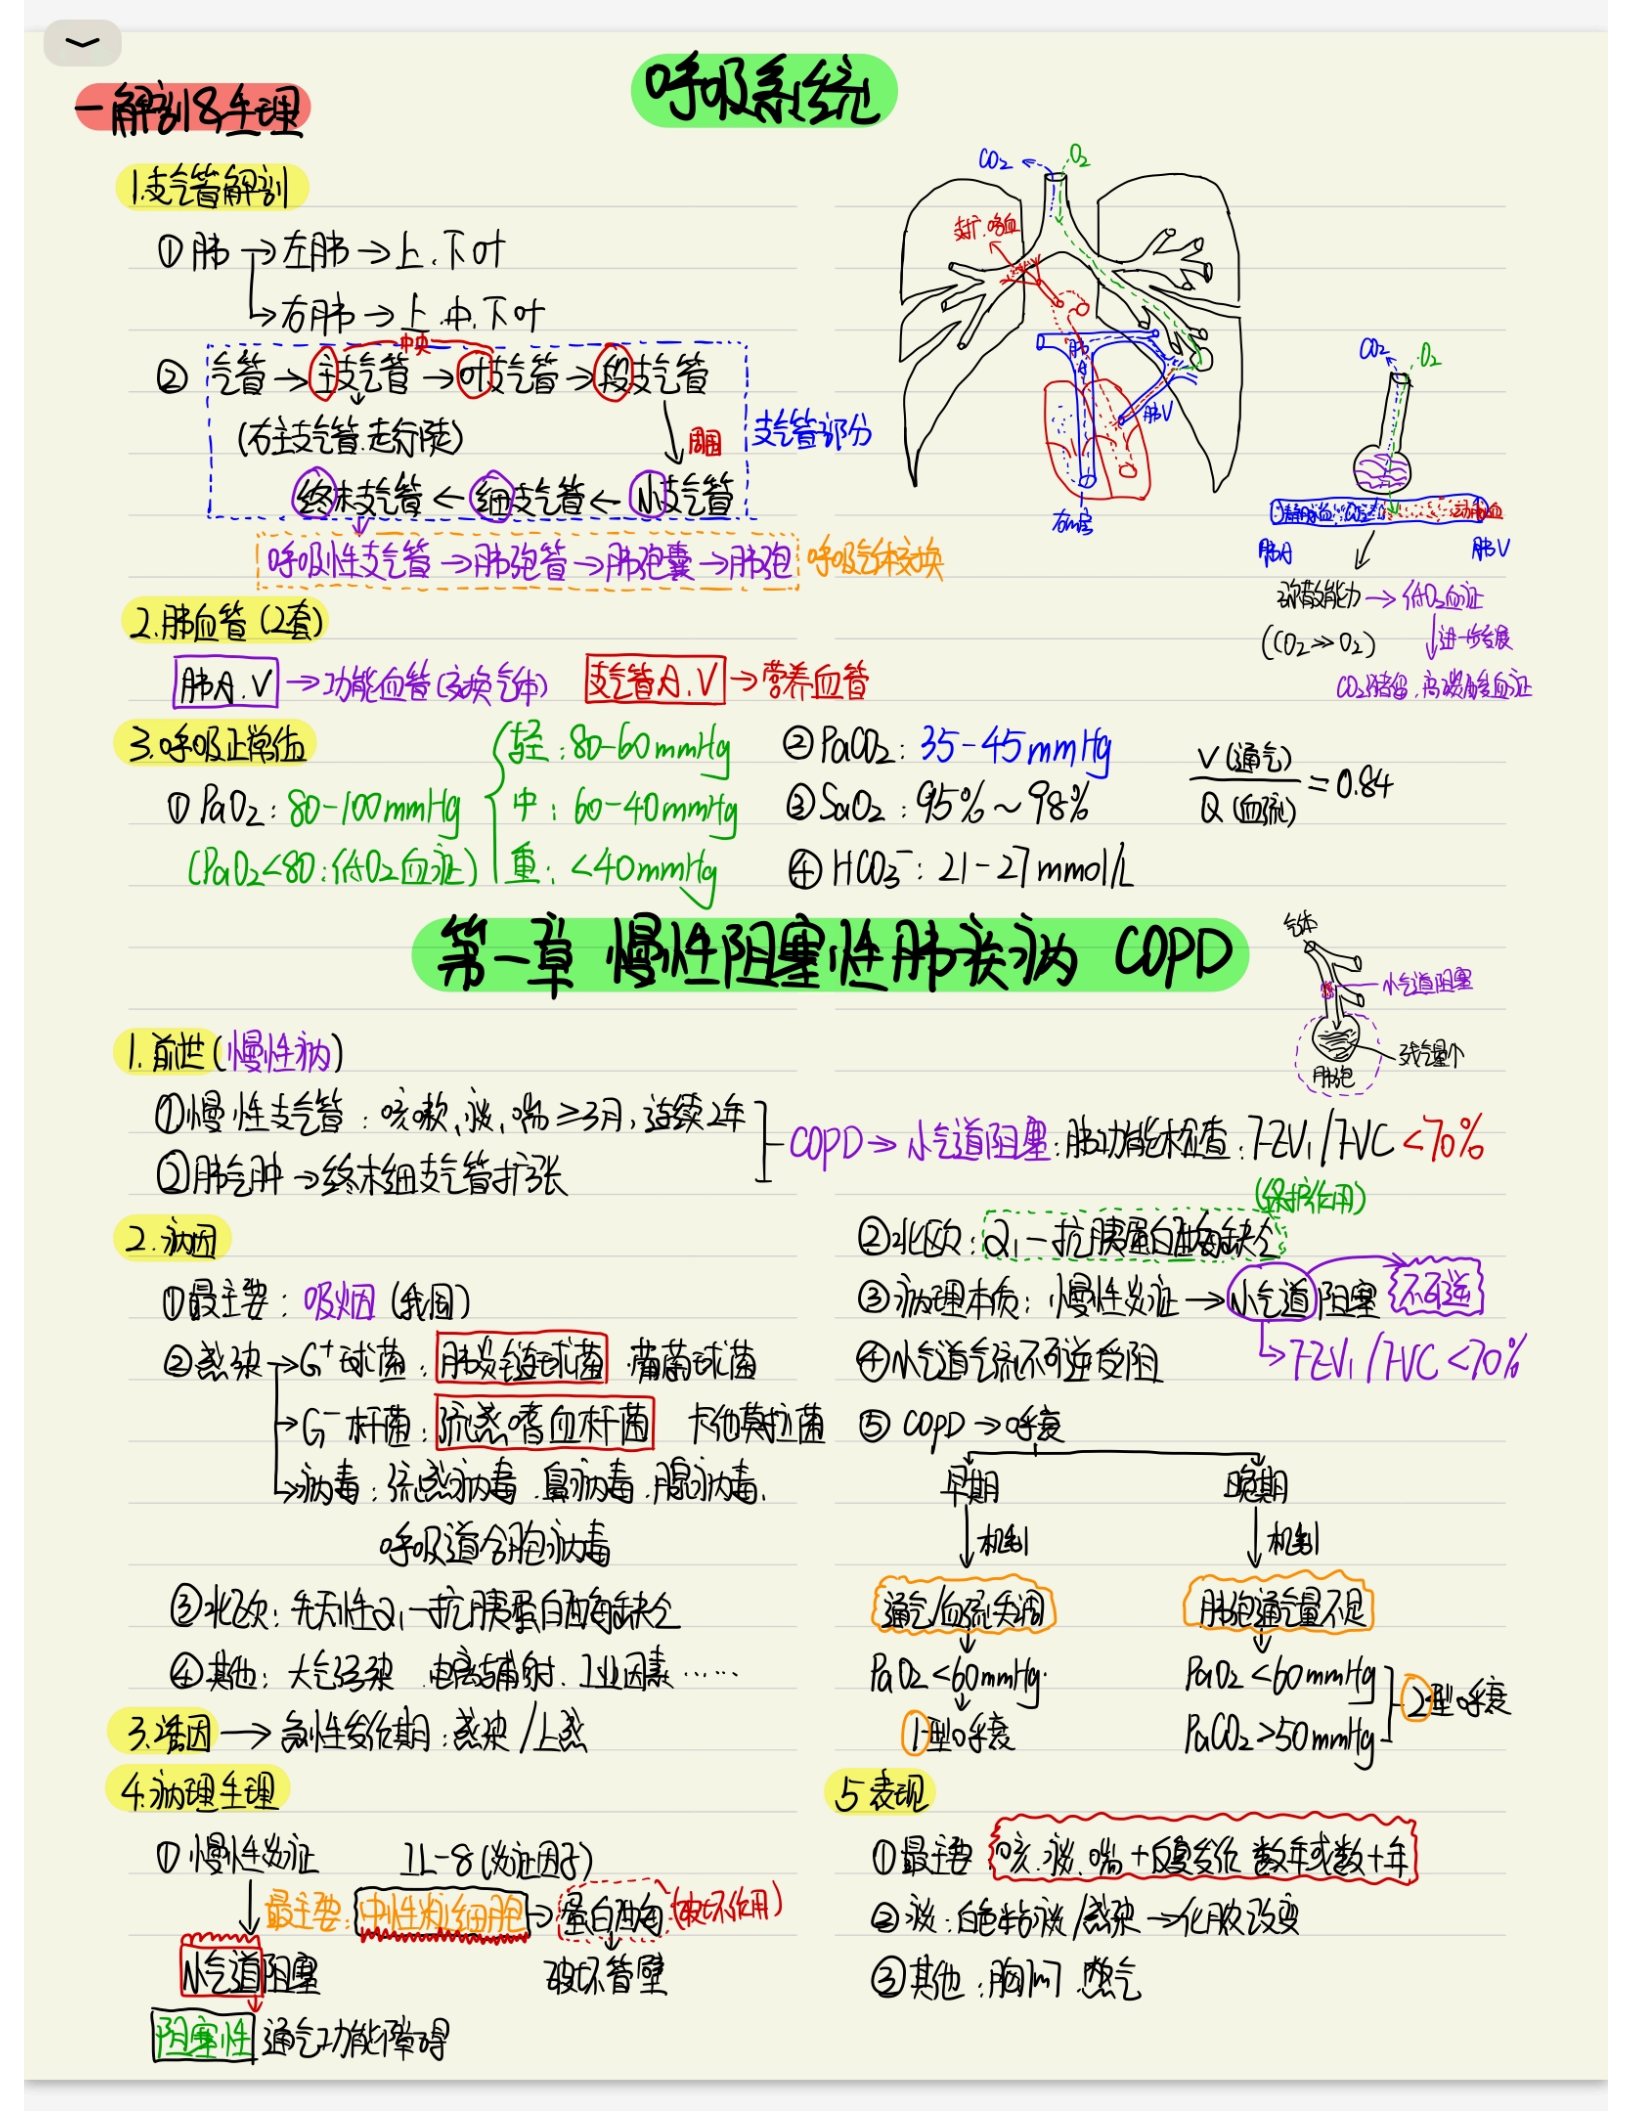 呼吸系统
一 解剖&生理
1.支气管解剖
① 肺 → 左肺 → 上.下叶
→ 右肺 → 上.中.下叶
中央
② 气管 → 主支气管 → 叶支气管 → 段支气管
(右主支气管.走行陡)
周围
支气管部分
终末支气管 ← 细支气管 ← 小支气管
呼吸性支气管 → 肺泡管 → 肺泡囊 → 肺泡
呼吸气体交换
CO₂ O₂
支扩.咯血
肺A
肺V
右心室
CO₂ O₂
静脉血.CO₂ 动脉血
肺A 肺V
弥散能力 → 低O₂血症
(CO₂ >> O₂) ↓进一步发展
CO₂潴留.高碳酸血症
2.肺血管 (2套)
肺A.V → 功能血管(交换气体) 支气管A.V → 营养血管
3.呼吸正常值
① PaO₂: 80-100mmHg
(PaO₂<80:低O₂血症)
轻: 80-60mmHg
中: 60-40mmHg
重: <40mmHg
② PaCO₂: 35-45mmHg
③ SaO₂: 95%~98%
④ HCO₃⁻: 21-27mmol/L
V (通气)
Q (血流)
= 0.84
第一章 慢性阻塞性肺疾病 COPD
气体
小气道阻塞
残气量个
肺泡
1.前世(慢性病)
①慢性支气管: 咳嗽、痰、喘≥3月,连续2年
②肺气肿 → 终末细支气管扩张
COPD → 小气道阻塞:肺功能检查:FEV₁/FVC <70%
2.病因
①最主要: 吸烟 (我国)
②感染 → G⁺球菌: 肺炎链球菌.葡萄球菌
→ G⁻杆菌: 流感嗜血杆菌 卡他莫拉菌
→ 病毒: 流感病毒.鼻病毒.腺病毒.
呼吸道合胞病毒
③北欧: 先天性α₁-抗胰蛋白酶缺乏
④其他: 大气污染 电离辐射.工业因素……
3.诱因 → 急性发作期:感染/上感
4.病理生理
① 慢性炎症 IL-8(炎症因子)
最主要: 中性粒细胞 → 蛋白酶 (破坏作用)
小气道阻塞 破坏管壁
阻塞性 通气功能障碍
(保护作用)
②北欧: α₁-抗胰蛋白酶缺乏
③病理本质: 慢性炎症 → 小气道阻塞 不可逆
→ FEV₁/FVC <70%
④小气道气流不可逆受阻
⑤ COPD → 呼衰
早期 晚期
↓机制 ↓机制
通气/血流失调 肺泡通气量不足
PaO₂<60mmHg. PaO₂<60mmHg
1型呼衰 PaCO₂>50mmHg
2型呼衰
5 表现
①最主要 咳.痰.喘+反复发作 数年或数十年
②痰: 白色粘痰/感染 → 化脓改变
③其他: 胸闷.憋气